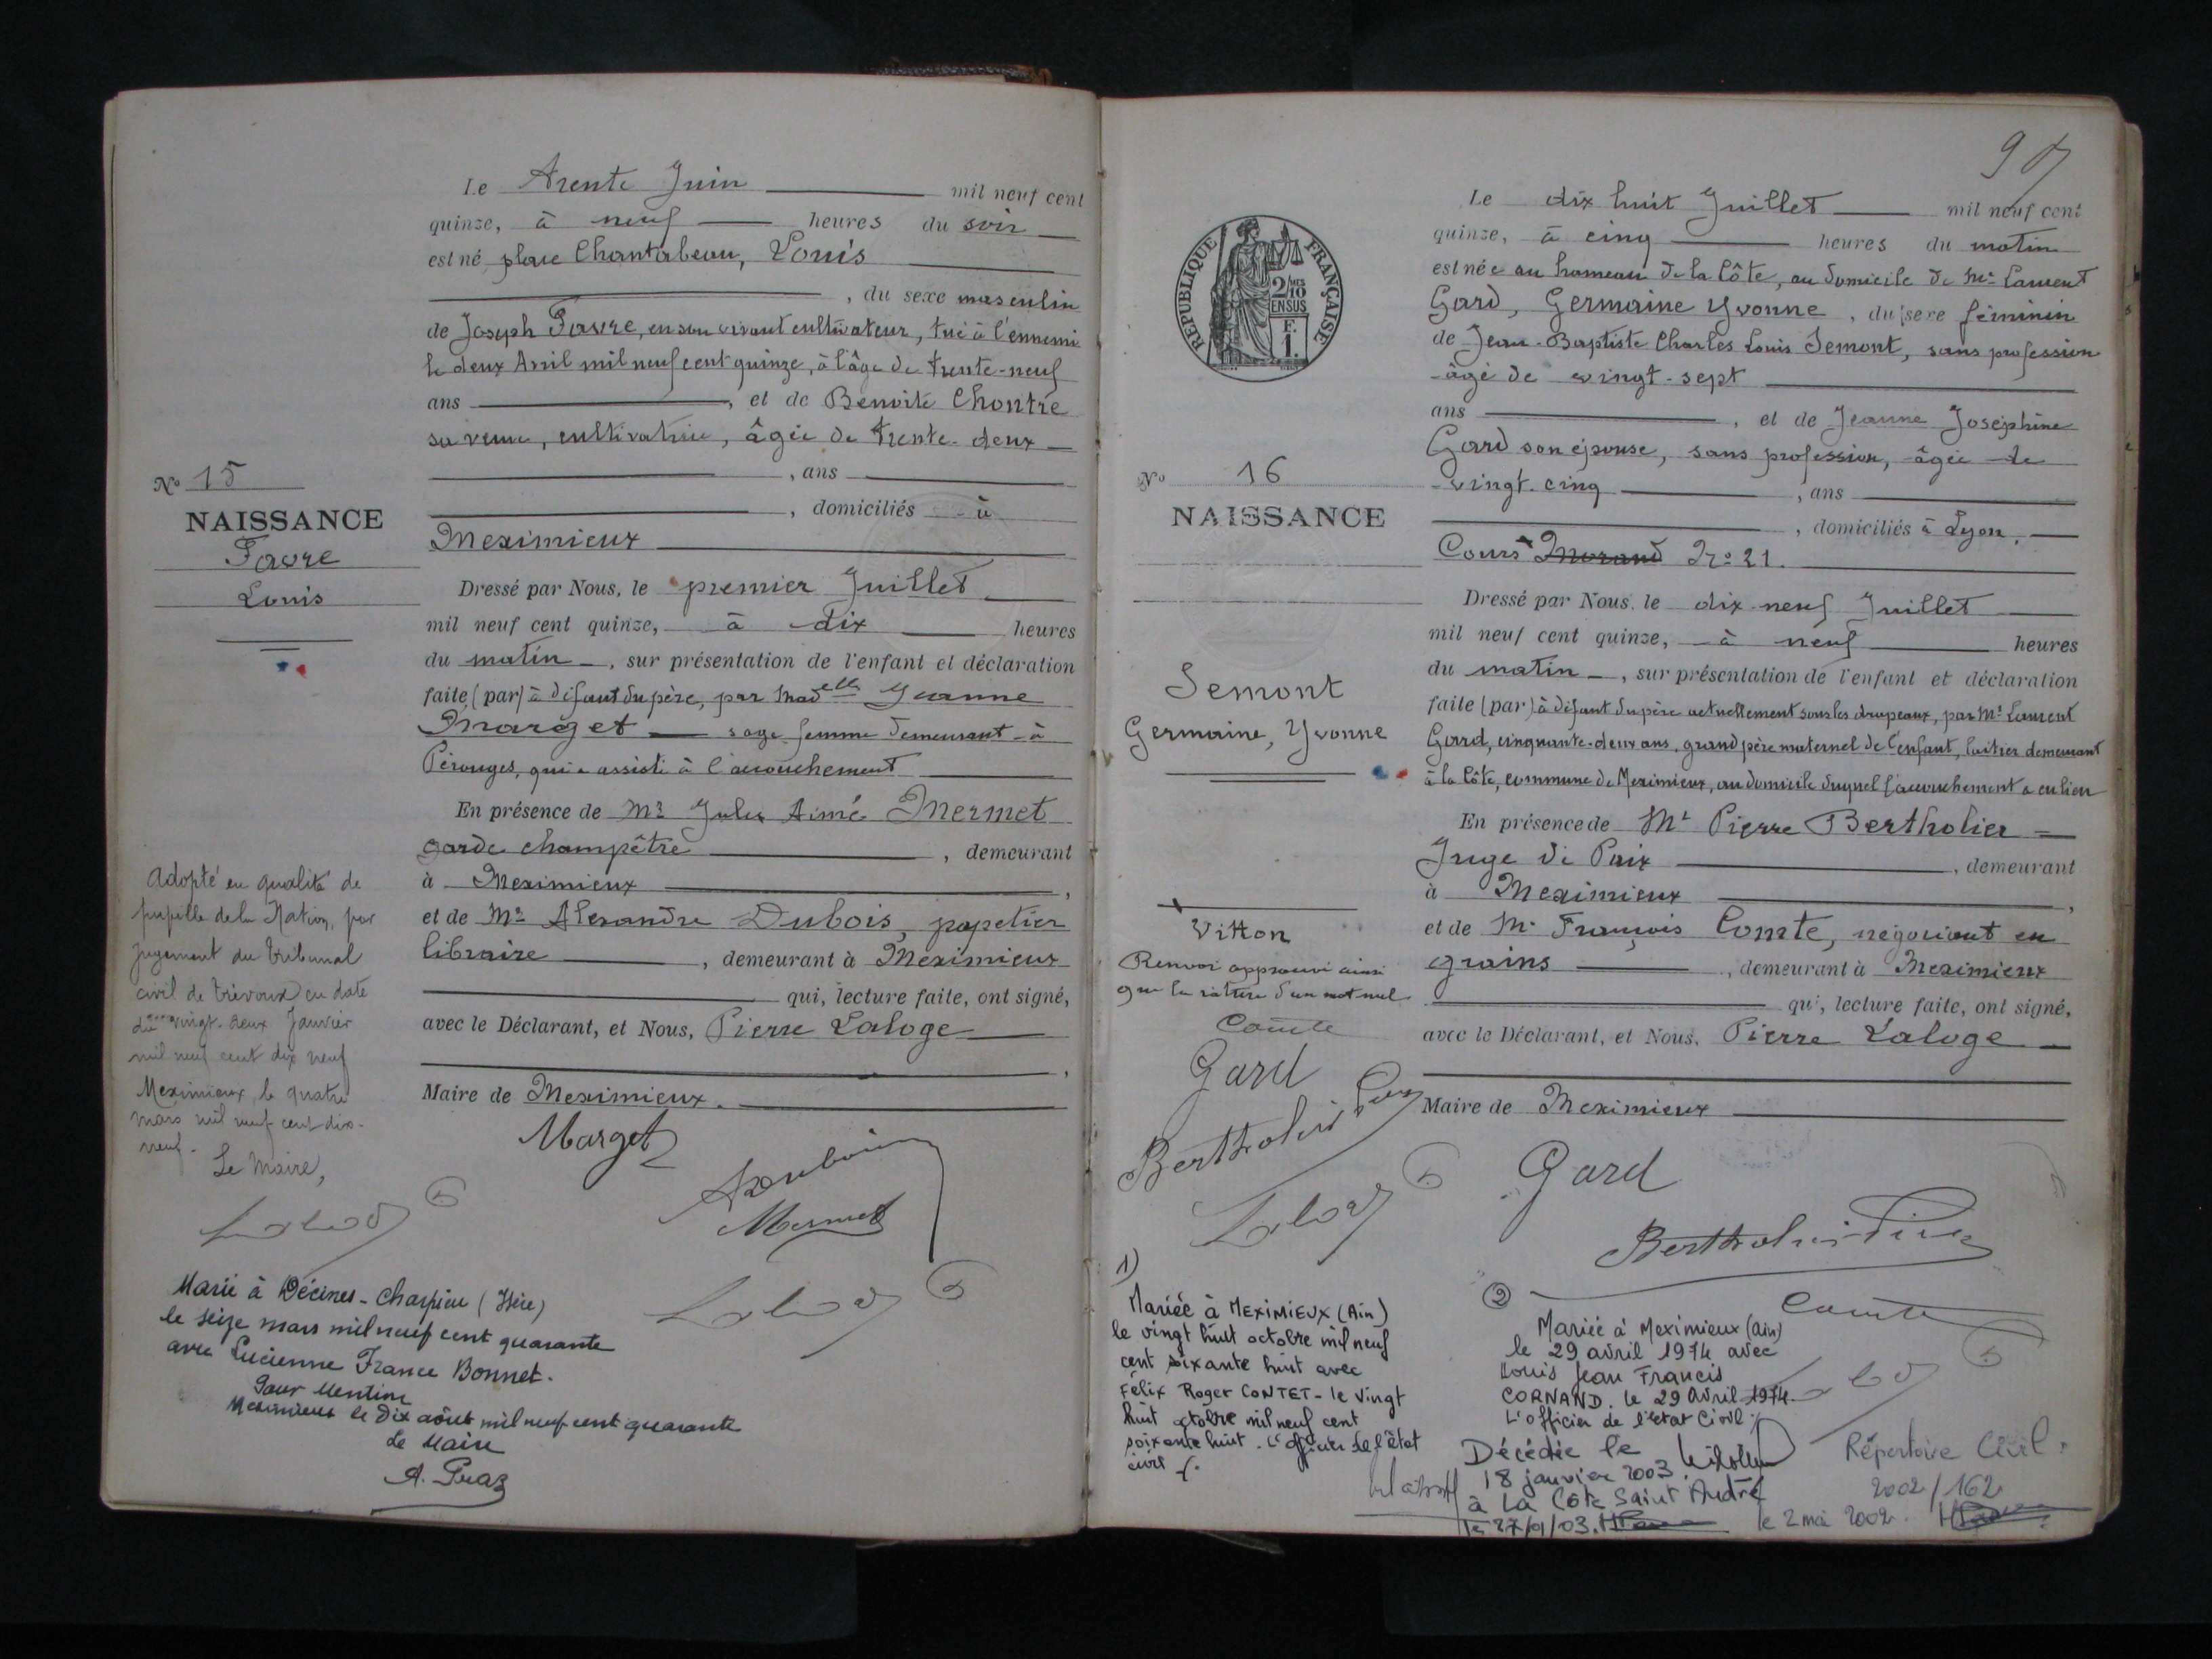 Le Trente Juin mil neuf cent
quinze, à neuf heures du soir
est né place Chantabeau, Louis
, du sexe masculin
de Joseph Favre, en son vivant cultivateur, tué à l'ennemi
le deux Avril mil neuf cent quinze, à l'âge de trente-neuf
ans , et de Benoite Chontre
sa veuve, cultivatrice, âgée de trente-deux
, ans
, domiciliés à
Meximieux
Nº 15
NAISSANCE
Favre
Louis
Dressé par Nous, le premier Juillet
mil neuf cent quinze, à dix heures
du matin, sur présentation de l'enfant et déclaration
faite (par) à défaut du père, par Madelle Jeanne
Marget sage femme demeurant à
Pérouges, qui a assisté à l'accouchement
En présence de Mr Jules Aimé Mermet
garde champêtre , demeurant
à Meximieux ,
et de Mr Alexandre Dubois, papetier
libraire , demeurant à Meximieux
qui, lecture faite, ont signé,
avec le Déclarant, et Nous, Pierre Laloge
,
Maire de Meximieux.
Marget
Dubois
Mermet
Adopté en qualité de
pupille de la Nation, par
jugement du tribunal
civil de Trévoux en date
du vingt-deux Janvier
mil neuf cent dix neuf
Meximieux, le quatre
mars mil neuf cent dix-
neuf.
Le Maire,
Marié à Décines-Charpieu (Isère)
le seize mars mil neuf cent quarante
avec Lucienne France Bonnet.
Pour Mention
Meximieux le dix août mil neuf cent quarante
Le Maire
A. Praz
Le dix huit Juillet mil neuf cent
quinze, à cinq heures du matin
est née au hameau de la Côte, au domicile de Mr Laurent
Gard, Germaine Yvonne, du sexe féminin
de Jean-Baptiste Charles Louis Semont, sans profession
âgé de vingt-sept
ans , et de Jeanne Joséphine
Gard son épouse, sans profession, âgée de
vingt-cinq , ans
, domiciliés à Lyon,
Cours Morand Nº 21.
REPUBLIQUE FRANÇAISE
2/10 MES
EN SUS
F.
1.
Nº 16
NAISSANCE
Semont
Germaine, Yvonne
Dressé par Nous, le dix-neuf Juillet
mil neuf cent quinze, à neuf heures
du matin, sur présentation de l'enfant et déclaration
faite (par) à défaut du père actuellement sous les drapeaux, par Mr Laurent
Gard, cinquante-deux ans, grand père maternel de l'enfant, laitier demeurant
à la Côte, commune de Meximieux, au domicile duquel l'accouchement a eu lieu
En présence de Mr Pierre Bertholier
Juge de Paix , demeurant
à Meximieux ,
et de Mr François Comte, négociant en
grains , demeurant à Meximieux
qui, lecture faite, ont signé,
avec le Déclarant, et Nous, Pierre Laloge
Maire de Meximieux
Vitton
Renvoi approuvé ainsi
que la rature d'un mot nul
Comte
Gard
Gard
Comte
1)
Mariée à MEXIMIEUX (Ain)
le vingt huit octobre mil neuf
cent soixante huit avec
Félix Roger CONTET - le vingt
huit octobre mil neuf cent
soixante huit. L'officier de l'état
civil
2
Mariée à Meximieux (Ain)
le 29 avril 1974 avec
Louis Jean Francis
CORNAND. le 29 avril 1974.
L'officier de l'état civil
Décédée le
18 janvier 2003
à La Côte Saint André
le 27/01/03.
Répertoire Civil.
2002/162
le 2 mai 2002.